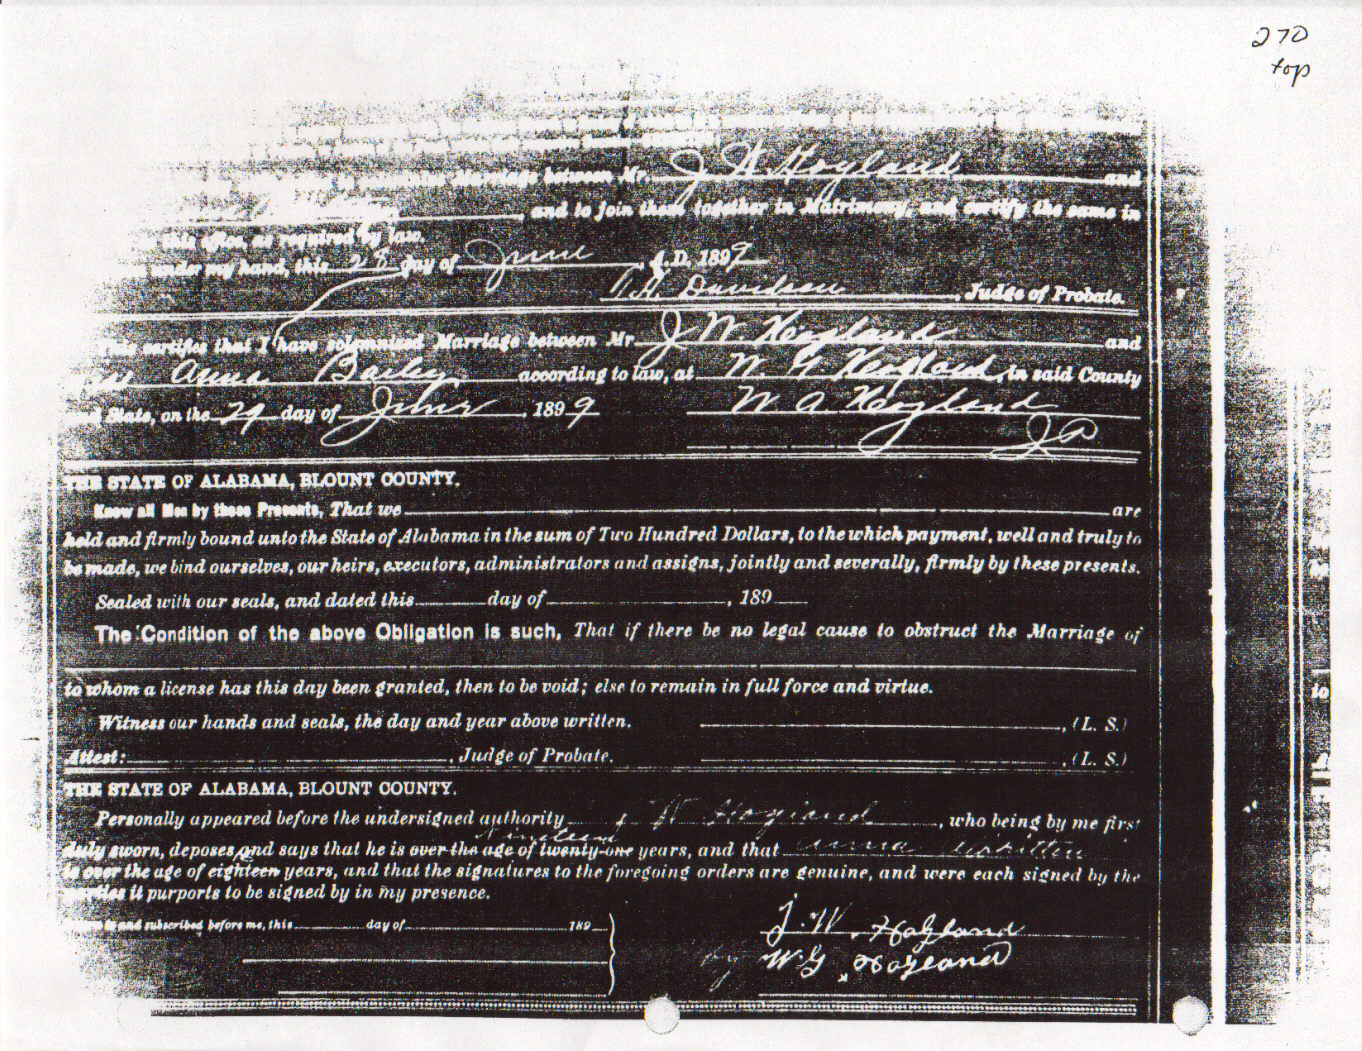 270
top
Marriage between Mr. J W Hoygland and
, and to join them together in Matrimony, and certify the same in
this office as required by law.
under my hand, this 28 day of June, A.D. 1899
Davidson, Judge of Probate.
certifies that I have solemnized Marriage between Mr J W Hoygland and
Anna Bailey according to law, at W. G Hoygland, in said County
State, on the 29 day of June, 1899 W A Hoygland
JP
THE STATE OF ALABAMA, BLOUNT COUNTY.
Know all Men by these Presents, That we are
held and firmly bound unto the State of Alabama in the sum of Two Hundred Dollars, to the which payment, well and truly to
be made, we bind ourselves, our heirs, executors, administrators and assigns, jointly and severally, firmly by these presents.
Sealed with our seals, and dated this day of , 189
The Condition of the above Obligation is such, That if there be no legal cause to obstruct the Marriage of
to whom a license has this day been granted, then to be void; else to remain in full force and virtue.
Witness our hands and seals, the day and year above written. , (L. S.)
Attest: , Judge of Probate. , (L. S.)
THE STATE OF ALABAMA, BLOUNT COUNTY.
Personally appeared before the undersigned authority J W Hoygland, who being by me first
Nineteen
duly sworn, deposes and says that he is over the age of twenty-one years, and that Anna
is over the age of eighteen years, and that the signatures to the foregoing orders are genuine, and were each signed by the
it purports to be signed by in my presence.
and subscribed before me, this day of 189
J. W. Hoygland
by W. G. Hoygland